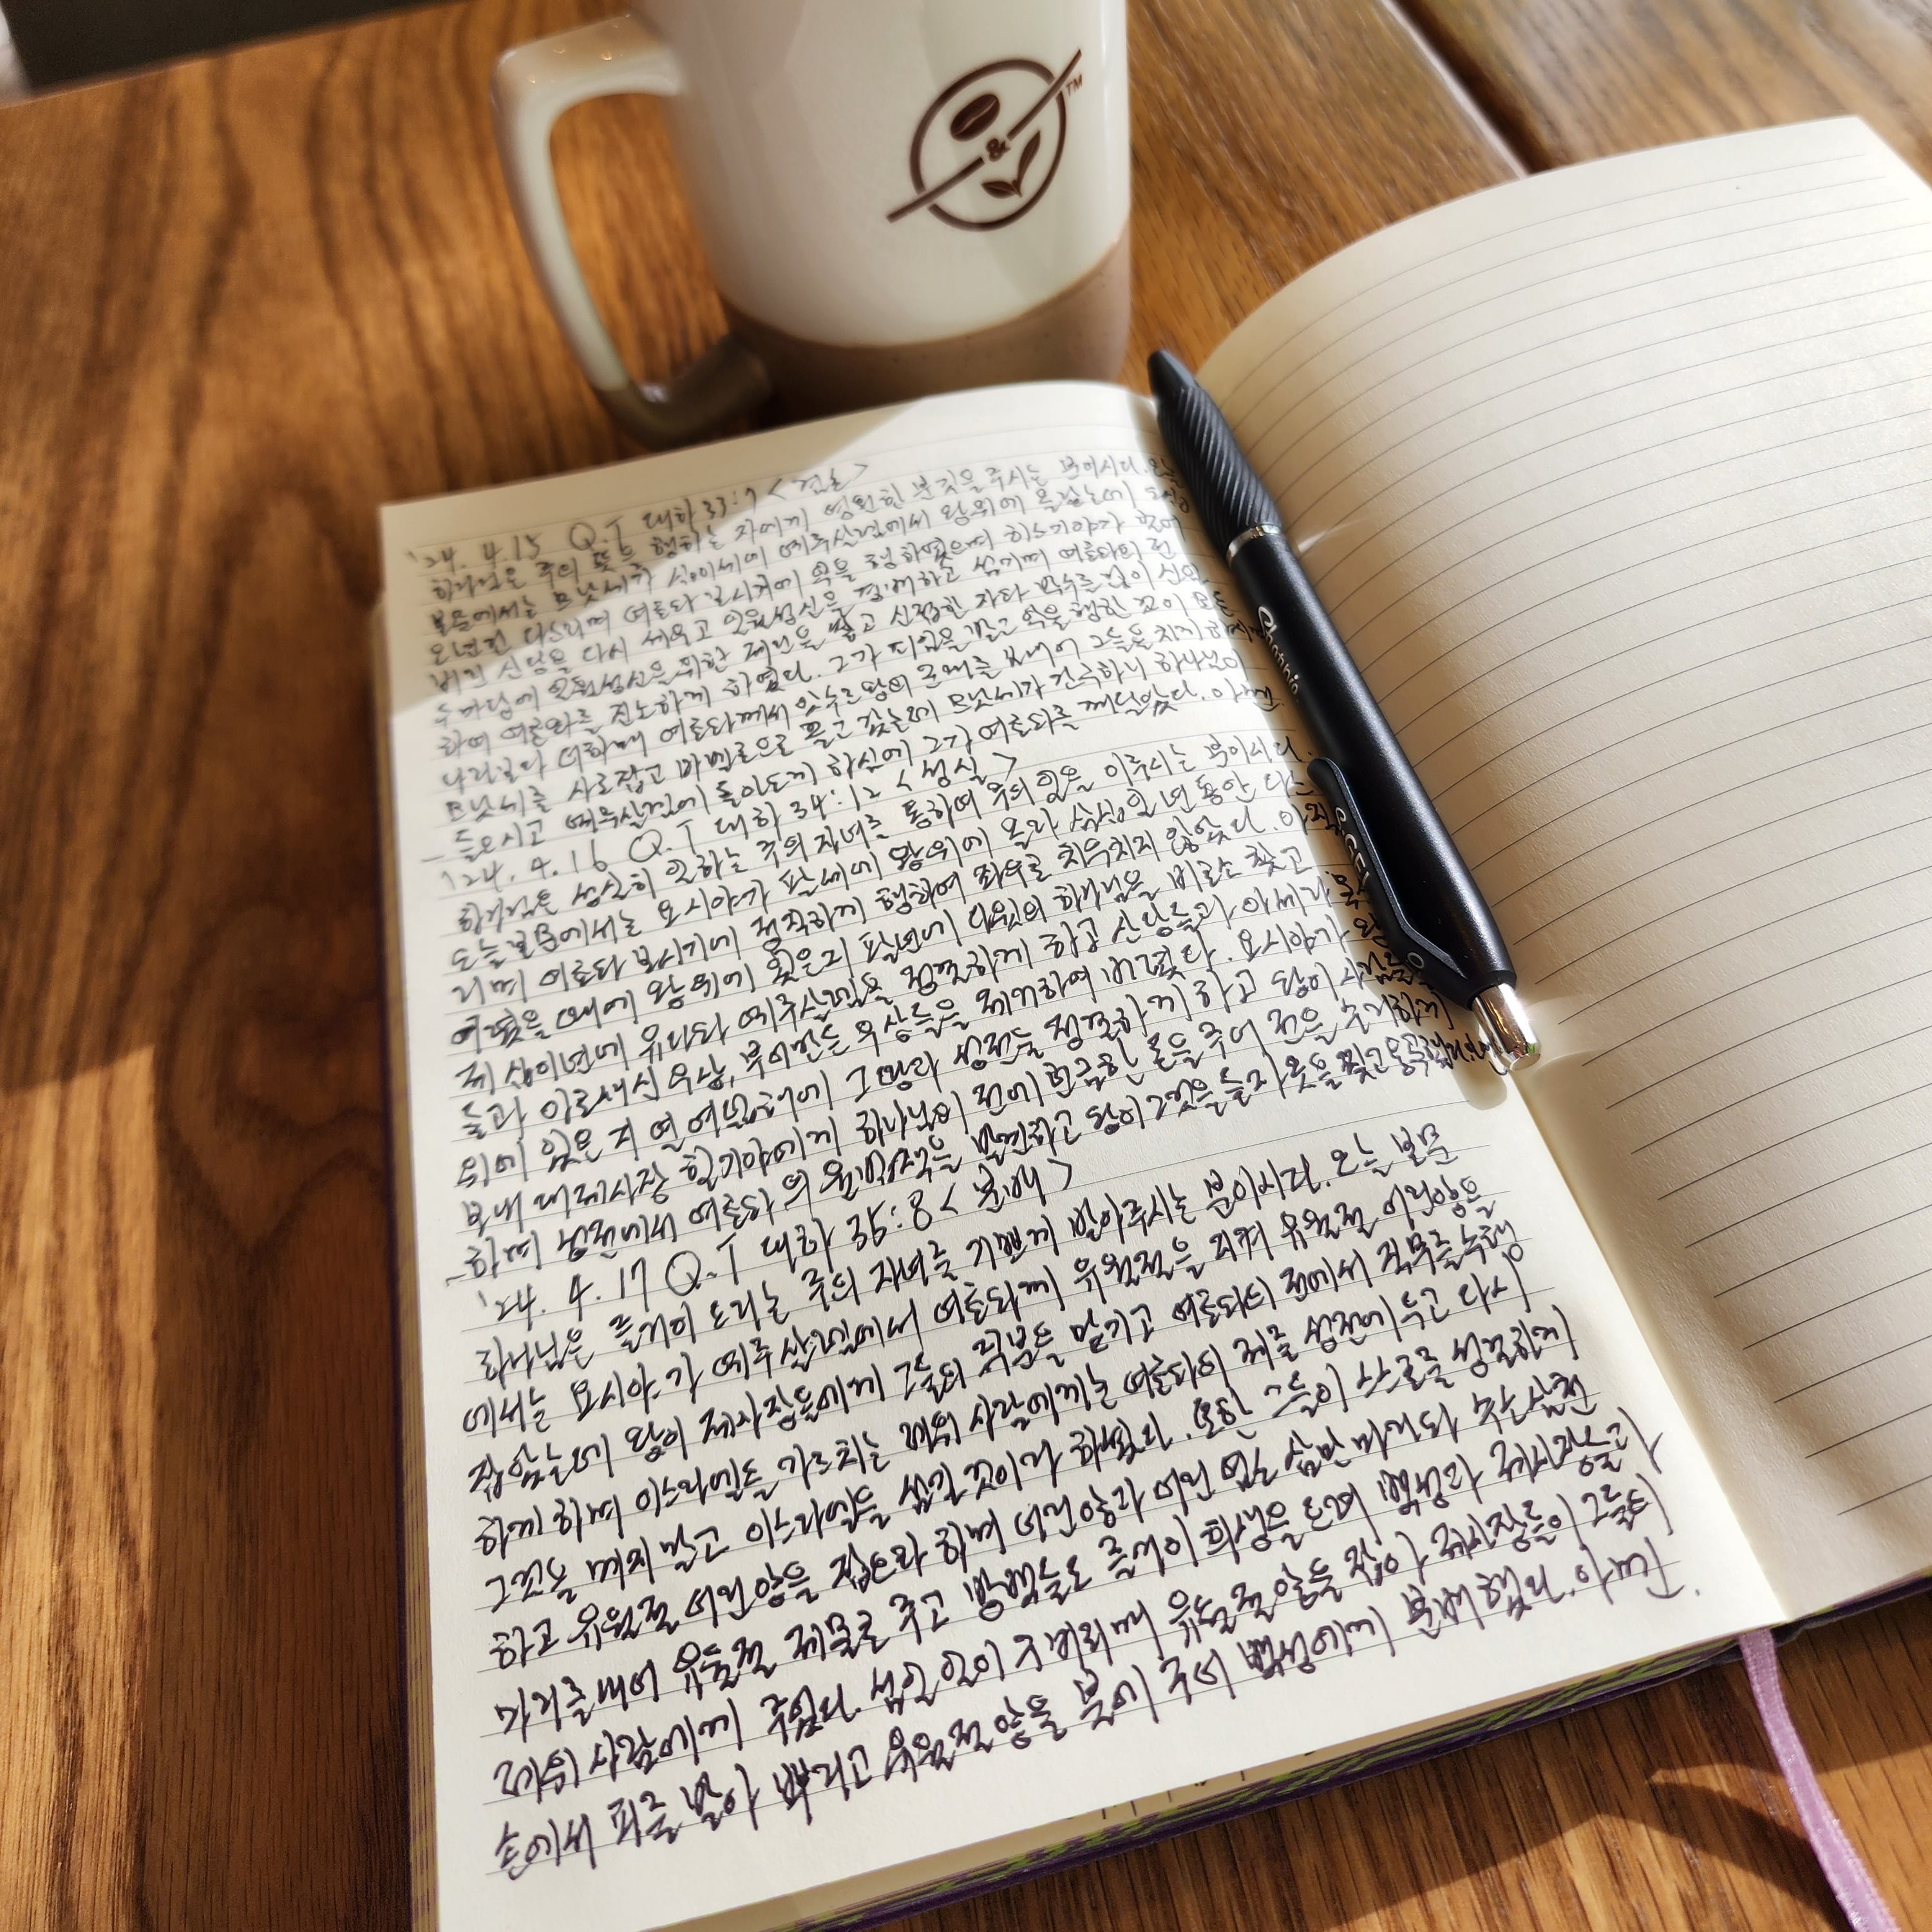 &
TM
'24. 4.15 Q.T 대하 33:7
하나님은 주의 뜻을 행하는 자에게 영원한 분깃을 주시는 분이시다.
본문에서는 므낫세가 십이세에 예루살렘에서 왕위에 올랐는데 오십
오년간 다스리며 여호와 보시기에 악을 행하였으며 히스기야가 헐어
버린 신당을 다시 세우고 일월성신을 경배하고 섬기며 여호와의 전
두마당에 일월성신을 위한 제단을 쌓고 신접한 자와 박수를 많이 신임
하여 여호와를 진노하게 하였다. 그가 피임을 받고 악을 행한 것이 모든
나라보다 더하매 여호와께서 앗수르왕의 군대를 보내어 그들을 치게 하시매
므낫세를 사로잡고 바벨론으로 끌고 갔는데 므낫세가 간구하니 하나님이
들으시고 예루살렘에 돌아오게 하심에 그가 여호와를 깨달았다. 아멘.
'24. 4.16 Q.T 대하 34:12 <성실>
하나님은 성실히 일하는 주의 자녀를 통하여 주의 일을 이루시는 분이시다.
오늘 본문에서는 요시야가 팔세에 왕위에 올라 삼십일 년 동안 다스
리며 여호와 보시기에 정직하게 행하여 좌우로 치우치지 않았다. 아직
어렸을 때에 왕위에 있은지 팔년에 다윗의 하나님을 비로소 찾고
제 십이년에 유다와 예루살렘을 정결하게 하고 신당들과 아세라 목상
들과 아로새긴 우상, 부어만든 우상들을 제거하여 버렸다. 요시야가 왕
위에 있은 지 열여덟째해에 그 땅과 성전을 정결하게 하고 많이 사람을
보내 대제사장 힐기야에게 하나님의 전에 헌금한 돈을 주어 전을 수리하게
하며 성전에서 여호와의 율법책을 발견하고 왕이 그것을 듣자 옷을 찢고 통곡했다.
'24. 4. 17 Q.T 대하 35:8 <분배>
하나님은 즐거이 드리는 주의 자녀를 기쁘게 받아주시는 분이시다. 오늘 본문
에서는 요시야가 예루살렘에서 여호와께 유월절을 지켜 유월절 어린양을
잡았는데 왕이 제사장들에게 그들의 직분을 맡기고 여호와의 전에서 직무를 수행
하게 하며 이스라엘을 가르치는 레위 사람에게는 여호와의 궤를 성전에 두고 다시
그것을 메지 말고 이스라엘을 섬길 것이라 하였다. 또한 그들이 스스로 성결하게
하고 유월절 어린 양을 잡으라 하며 어린양과 어린 염소 삼만 마리와 수소 삼천
마리를 내어 유월절 제물로 주고 방백들도 즐거이 희생을 드려 백성과 제사장들과
레위 사람에게 주었다. 섬길 일이 구비되매 유월절 양을 잡아 제사장들이 그들의
손에서 피를 받아 뿌리고 유월절 양을 나누어 주어 백성에게 분배했다. 아멘.